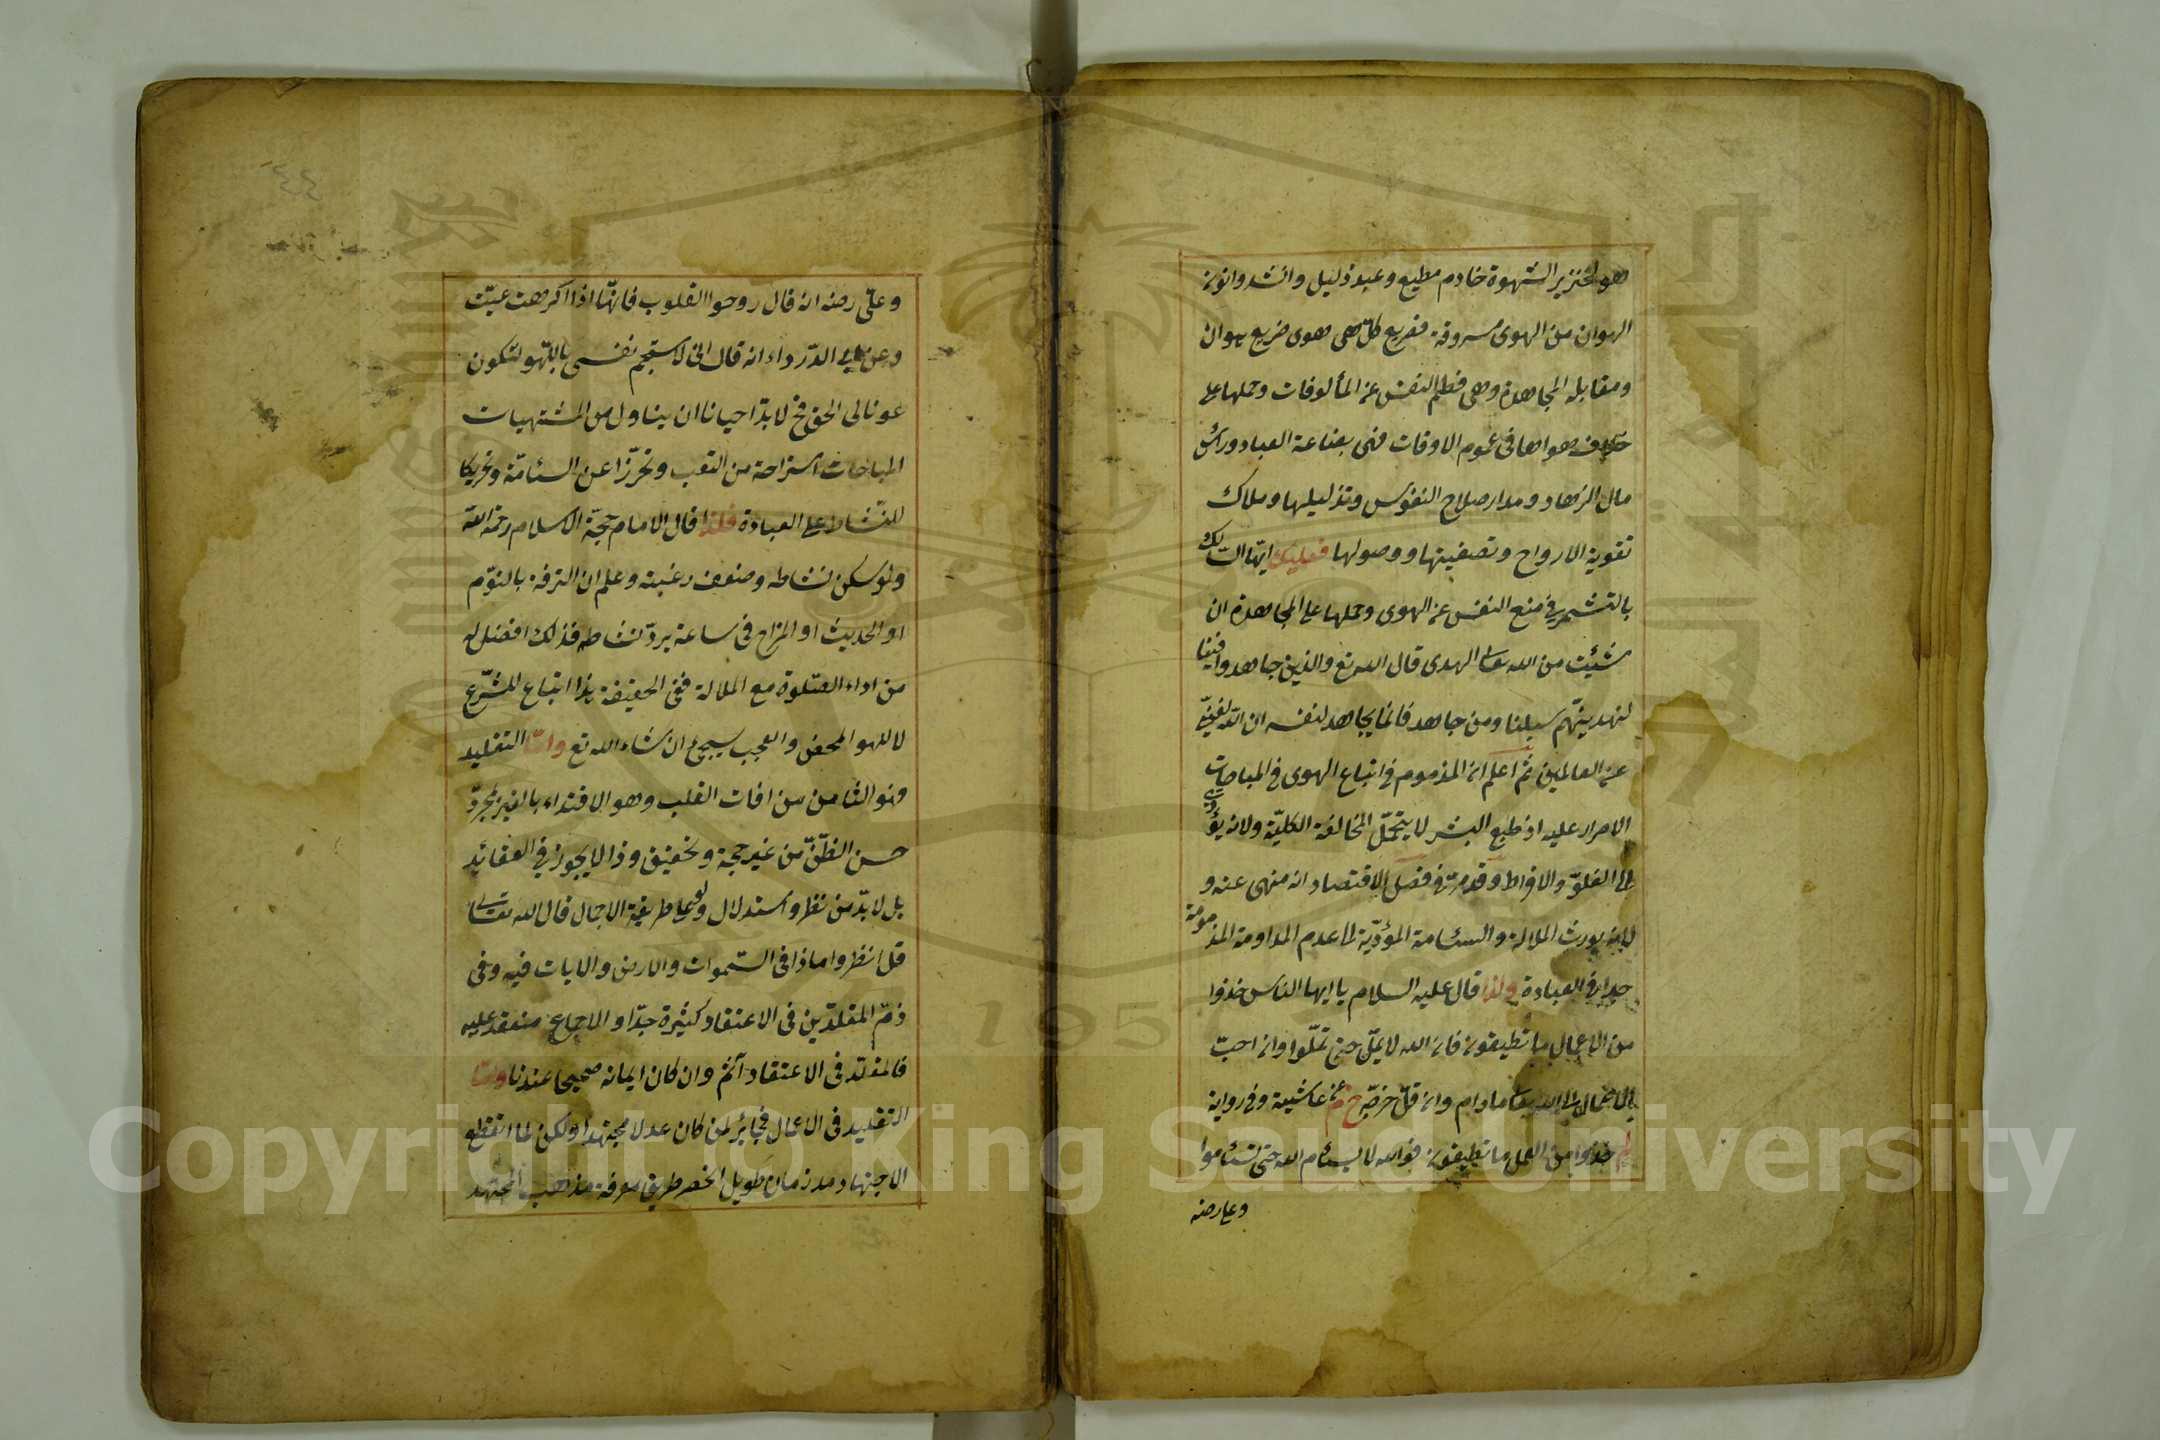 هو لخنزير الشهوة خادم مطيع وعبد ذليل وانشدوا نون
الهوان من الهوى مسروقة فصريع كل هوى صريع هوان
ومقابله المجاهدة وهي فطم النفس عن المألوفات وحملها على
خلاف هواها في عموم الاوقات فهي بضاعة العباد ورأس
مال الزهاد ومدار صلاح النفوس وتذليلها وملاك
تقوية الارواح وتصفيتها ووصولها فعليك ايها السالك
بالتشمر في منع النفس عن الهوى وحملها على المجاهدة ان
شئت من الله تعالى الهدى قال الله تع والذين جاهدوا فينا
لنهدينهم سبلنا ومن جاهد فانما يجاهد لنفسه ان الله لغني
عن العالمين ثم اعلم ان المذموم في اتباع الهوى في المباحات
الاصرار عليه اذ طبع البشر لا يتحمل المخالفة الكلية ولانه يؤدي
الى الغلو والافراط وقد مر في فصل الاقتصاد انه منهى عنه و
لانه يورث الملالة والسئامة المؤدية لما عدم المداومة المذمومة
جدا في العبادة ولذا قال عليه السلام يا ايها الناس خذوا
من الاعمال ما تطيقون فان الله لا يمل حتى تملوا وان احب
الاعمال الى الله تعالى ما دام وان قل خرجه خ م عن عائشة وفي رواية
لم خذوا من العمل ما تطيقون فوالله لا يسئام الله حتى تسئاموا
وعلى رضه
وعلى رضه انه قال روحوا القلوب فانها اذا اكرهت عميت
وعن ابي الدرداء انه قال انى لاستجم نفسي باللهو لتكون
عونا لى الحق فح لا بد احيانا ان يتناول من المشتهيات
المباحات استراحة من التعب وتحرزا عن السئامة وتحريكا
للنشاط على العبادة فلذا قال الامام حجة الاسلام رحمة الله
ولو سكن نشاطه وضعف رغبته وعلم ان الترفه بالنوم
او الحديث او المزاح في ساعة يرد نشاطه فذلك افضل له
من اداء الصلوة مع الملالة ففى الحقيقة هذا اتباع للشرع
لا للهو المحض والعجب سيجئ ان شاء الله تع واما التقليد
وهو الثامن من افات القلب وهو الاقتداء بالغير بمجرد
حسن الظن من غير حجة وتحقيق وذا لا يجوز في العقائد
بل لا بد من نظر واستدلال ولو على طريقة الاجمال قال الله تعالى
قل انظروا ماذا في السموات والارض والايات فيه وفى
ذم المقلدين فى الاعتقاد كثيرة جدا والاجماع منعقد عليه
فالمقلد فى الاعتقاد آثم وان كان ايمانه صحيحا عندنا واما
التقليد فى الاعمال فجائز لمن كان عدلا مجتهدا ولكن لما انقطع
الاجتهاد مذ زمان طويل انحصر طريق معرفة مذهب المجتهد
Copyright © King Saud University
195